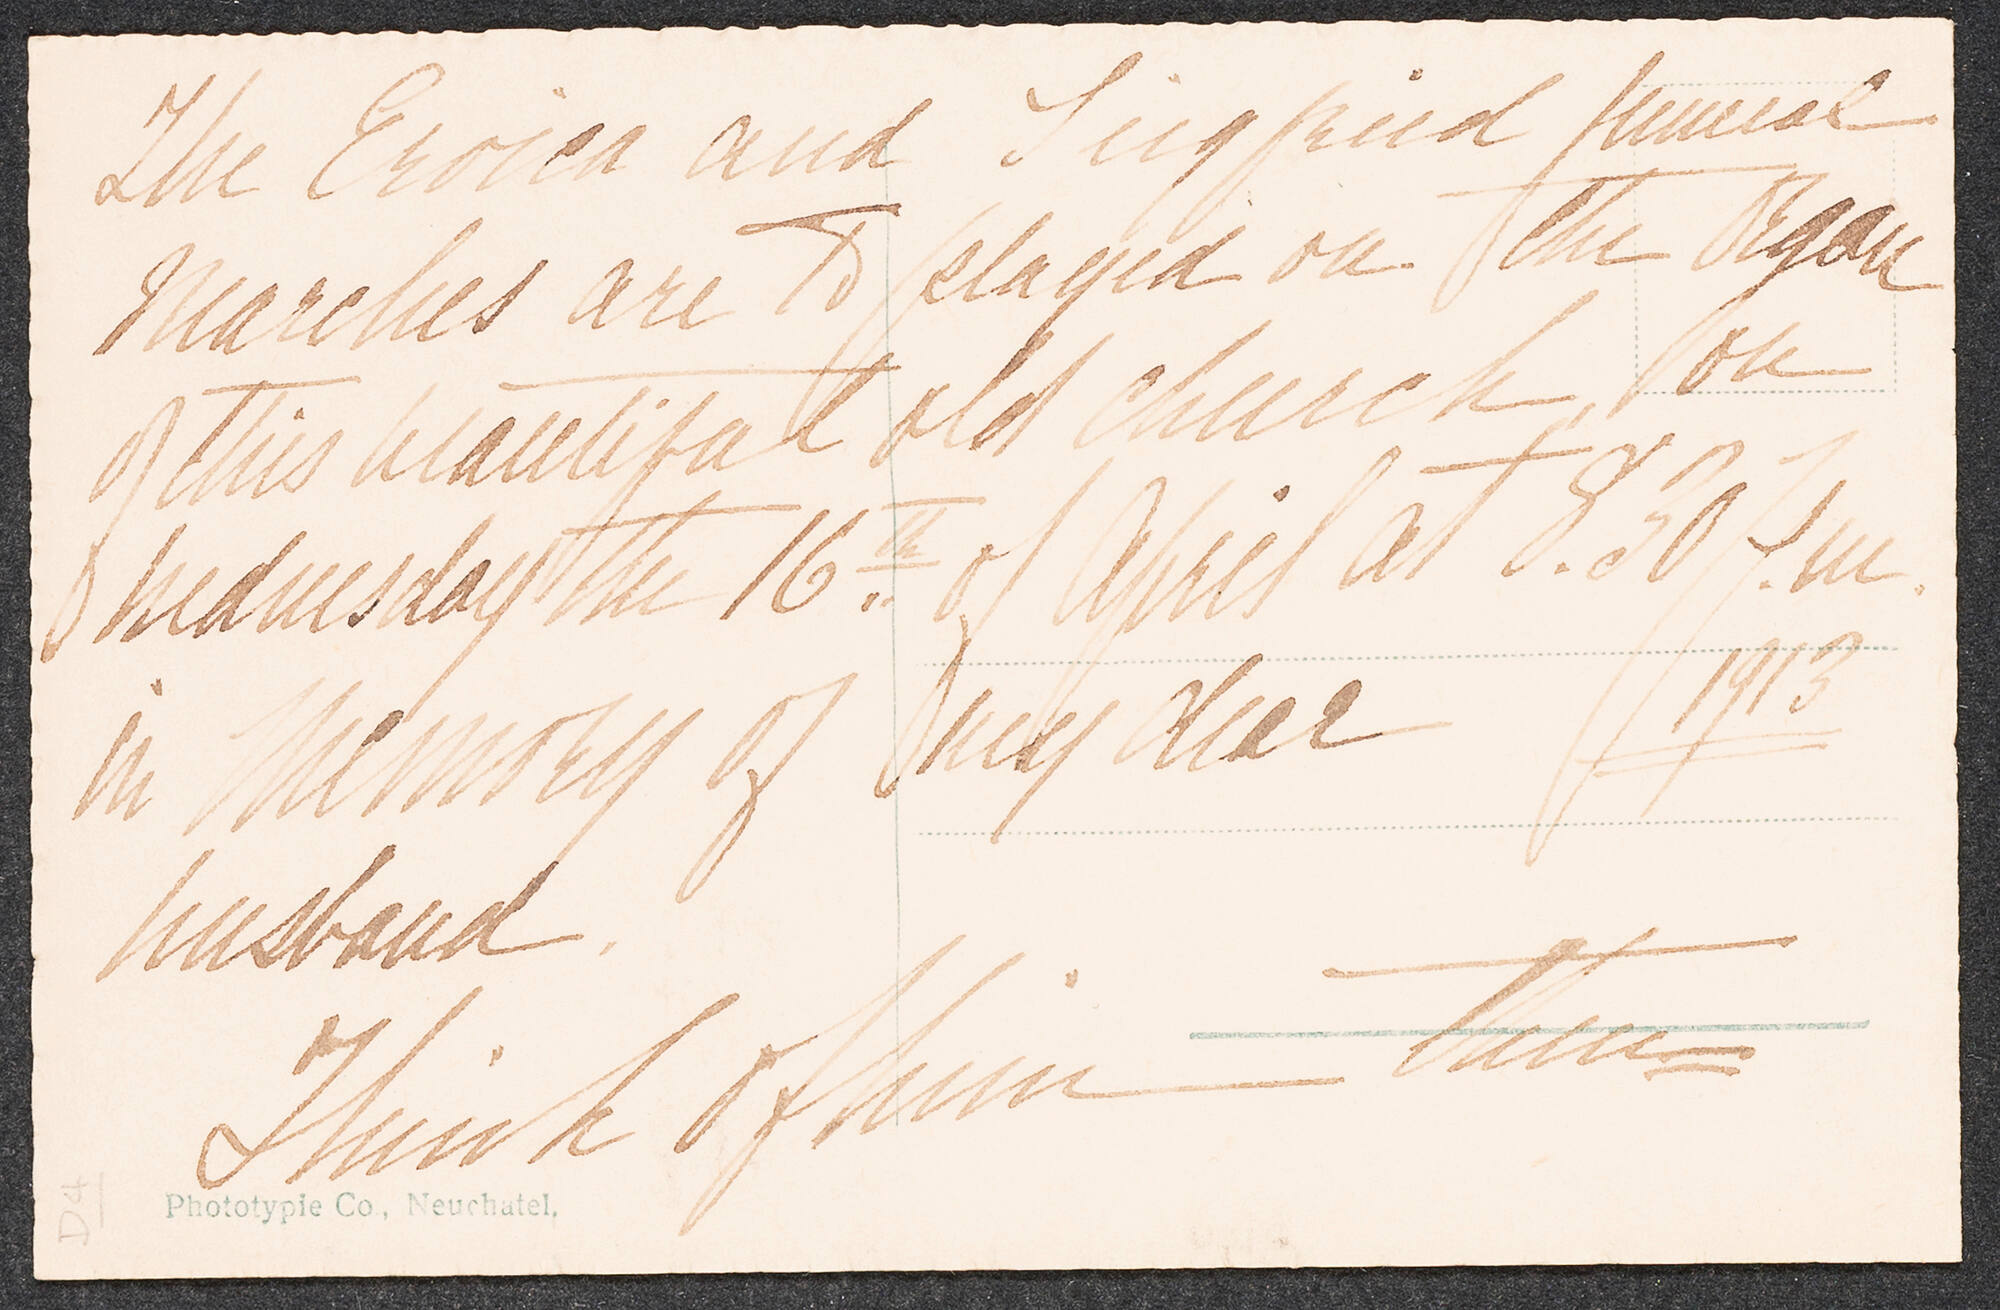 The Eroica and Siegfried funeral
marches are to played on the organ
of this beautiful old church, on
Wednesday the 16th of April at 8.30 p.m.
in memory of my dear 1913
husband.
Think of him then
Phototypie Co., Neuchatel.
D4